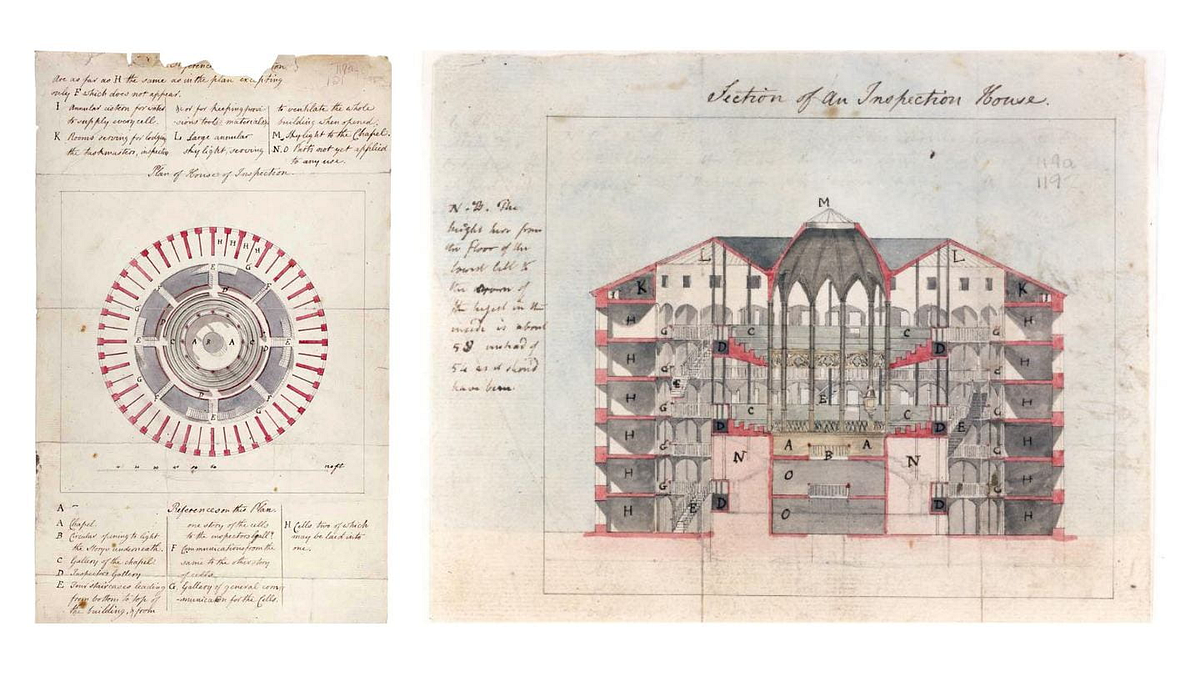 are as far as H the same as in the plan excepting
only F which does not appear.
I Annular cistern for water
to supply every cell.
K Rooms serving for lodging
the taskmasters,
for keeping
L Large annular
sky light, serving
to ventilate the whole
building when opened.
M Sky light to the Chapel.
N.O Parts not yet applied
to any use.
Plan of House of Inspection.
H H H H
E
G
A B A
A
References on this Plan.
A Chapel.
B Circular opening to light
the Story underneath.
C Gallery of the chapel
D Inspectors Gallery
E Four staircases leading
from bottom to top of
the building, & from
one story of the cells
to the inspectors Gall.
F Communications from the
same to the other story
of cells
G. Gallery of general com
-munication for the Cells.
H Cells two of which
may be laid into
one.
Section of an Inspection House.
119a
119
N.B. The
height here from
the floor of the
lowest Cell to
the crown of
the highest in the
inside is about
58 instead of
54 as it should
have been.
M
L L
K K
H G C C G H
H D D H
H G E G H
H G C C G H
H D A B A D E H
N O N
H G G H
H E D O D H